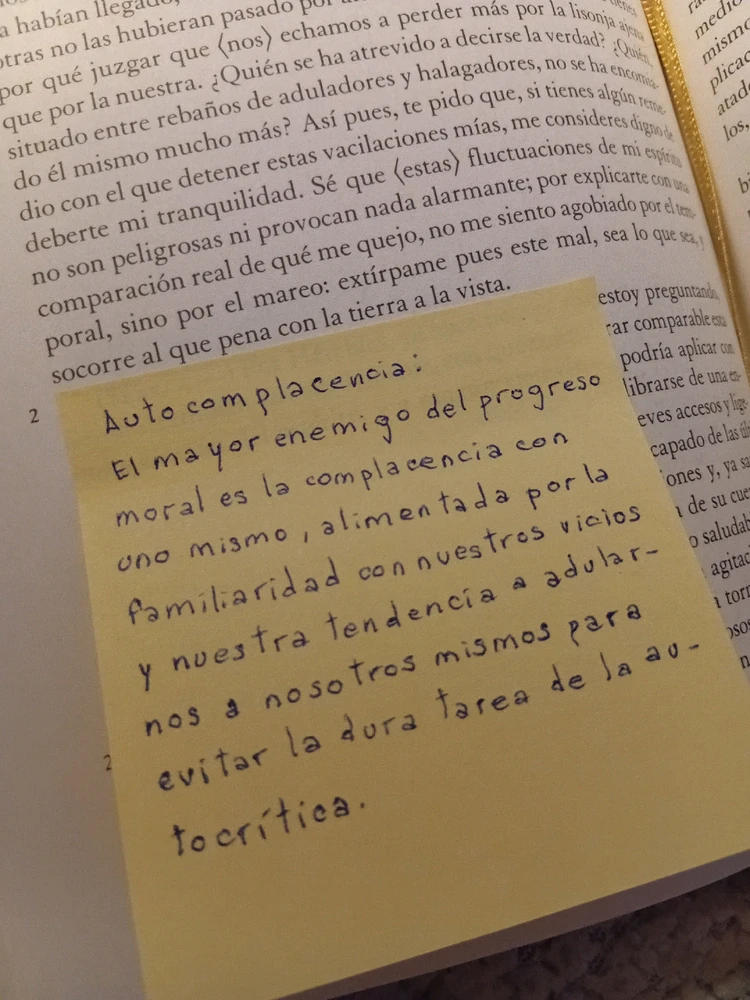 a habían llegado,
otras no las hubieran pasado por
por qué juzgar que ⟨nos⟩ echamos a perder más por la lisonja ajena
que por la nuestra. ¿Quién se ha atrevido a decirse la verdad? ¿Quién,
situado entre rebaños de aduladores y halagadores, no se ha encomia-
do él mismo mucho más? Así pues, te pido que, si tienes algún reme-
dio con el que detener estas vacilaciones mías, me consideres digno de
deberte mi tranquilidad. Sé que ⟨estas⟩ fluctuaciones de mi espíritu
no son peligrosas ni provocan nada alarmante; por explicarte con una
comparación real de qué me quejo, no me siento agobiado por el tem-
poral, sino por el mareo: extírpame pues este mal, sea lo que sea, y
socorre al que pena con la tierra a la vista.
2
estoy preguntando,
rar comparable esta
podría aplicar con
librarse de una en-
eves accesos y lige-
capado de las úl
iones y, ya sa
de su cue
o saludab
agitaci
a torn
osos
Autocomplacencia:
El mayor enemigo del progreso
moral es la complacencia con
uno mismo, alimentada por la
familiaridad con nuestros vicios
y nuestra tendencia a adular-
nos a nosotros mismos para
evitar la dura tarea de la au-
tocrítica.
2
medio
mismo
plicac
atado
los,